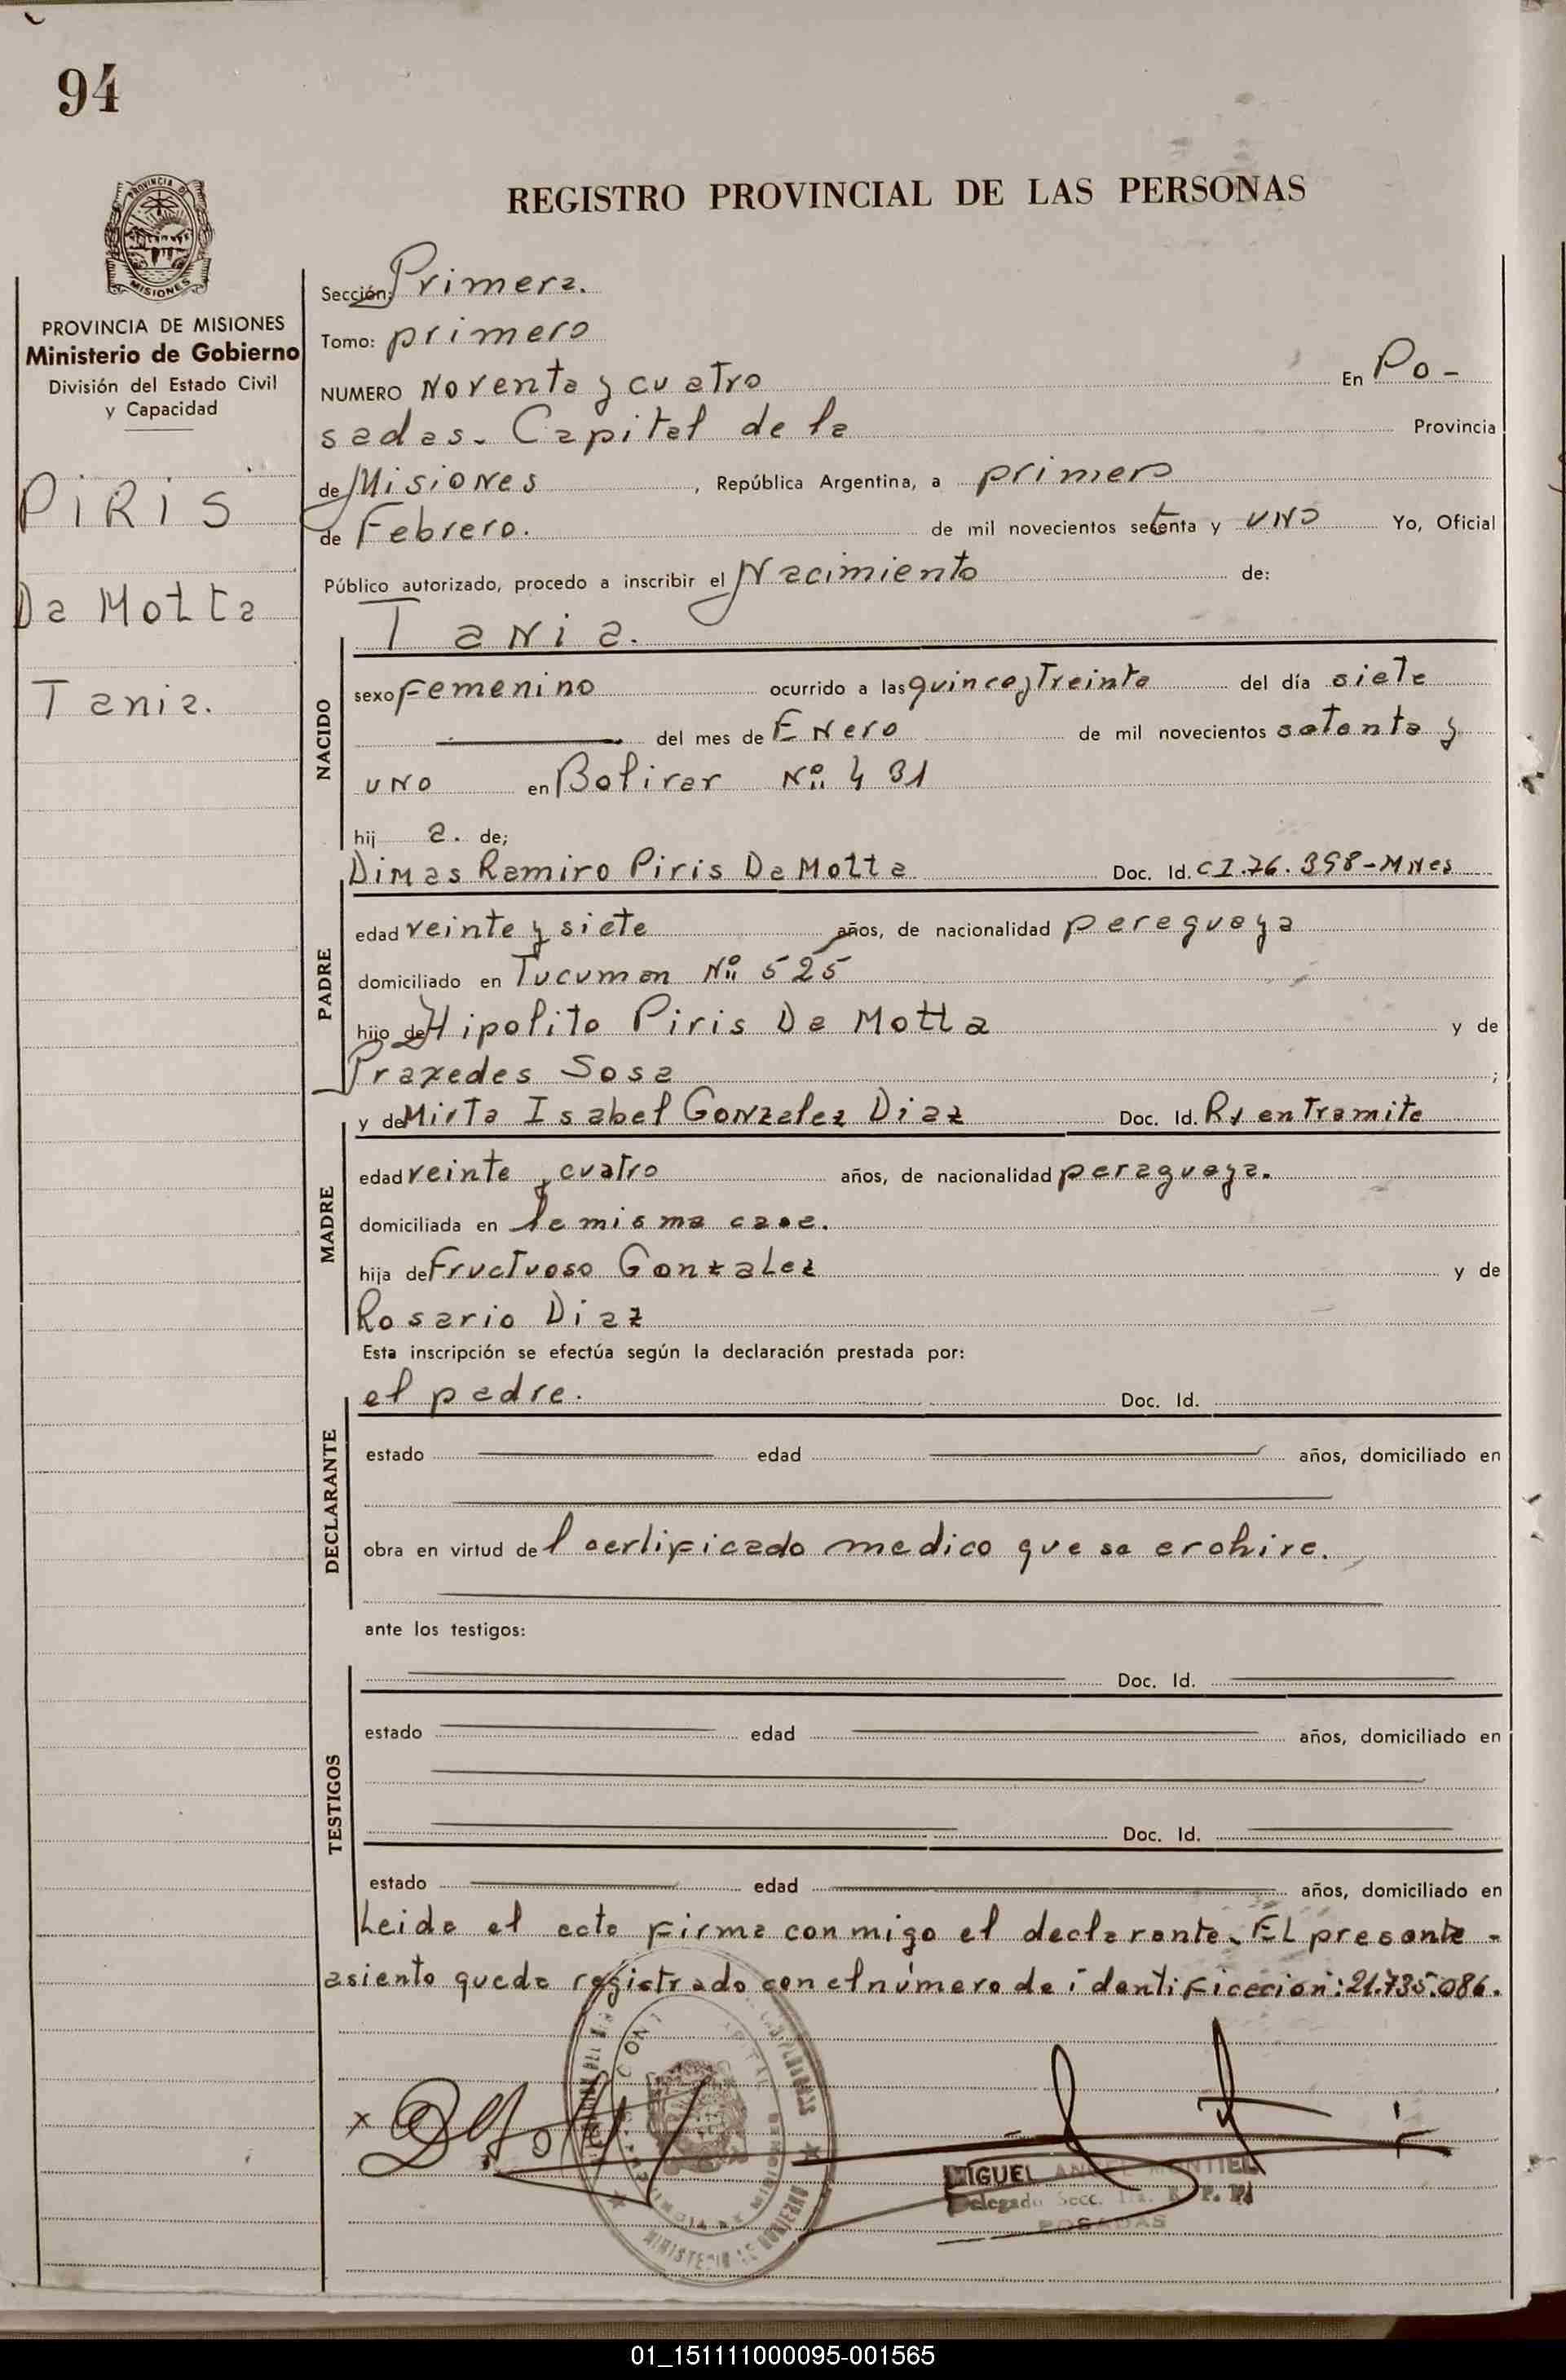 94
REGISTRO PROVINCIAL DE LAS PERSONAS
PROVINCIA DE MISIONES
Ministerio de Gobierno
División del Estado Civil
y Capacidad
PIRIS
Da Motta
Tania.
Sección: Primera.
Tomo: primero
NUMERO Noventa y cuatro En Po-
sadas. Capital de la Provincia
de Misiones, República Argentina, a primero
de Febrero. de mil novecientos setenta y uno Yo, Oficial
Público autorizado, procedo a inscribir el Nacimiento de:
Tania.
NACIDO
sexo Femenino ocurrido a las quince y Treinta del día siete
del mes de Enero de mil novecientos setenta y
uno en Bolivar Nº 431
hij a. de;
Dimas Ramiro Piris Da Motta Doc. Id. CI.76.398-Mnes
PADRE
edad veinte y siete años, de nacionalidad paraguaya
domiciliado en Tucuman Nº 525
hijo de Hipolito Piris Da Motta y de
Praxedes Sosa ;
y de Mirta Isabel Gonzalez Diaz Doc. Id. Rs en Tramite
MADRE
edad veinte y cuatro años, de nacionalidad paraguaya.
domiciliada en la misma casa.
hija de Fructuoso Gonzalez y de
Rosario Diaz
Esta inscripción se efectúa según la declaración prestada por:
el padre. Doc. Id.
DECLARANTE
estado edad años, domiciliado en
obra en virtud del certificado medico que se erchive.
ante los testigos:
Doc. Id.
TESTIGOS
estado edad años, domiciliado en
Doc. Id.
estado edad años, domiciliado en
Leida el acta firma conmigo el declarante. EL presente -
asiento queda registrado con el número de identificacion: 21.735.086.
MIGUEL ANGEL MONTIEL
Delegado Secc. 1ra. R. P. P.
POSADAS
MINISTERIO DE GOBIERNO
01_151111000095-001565